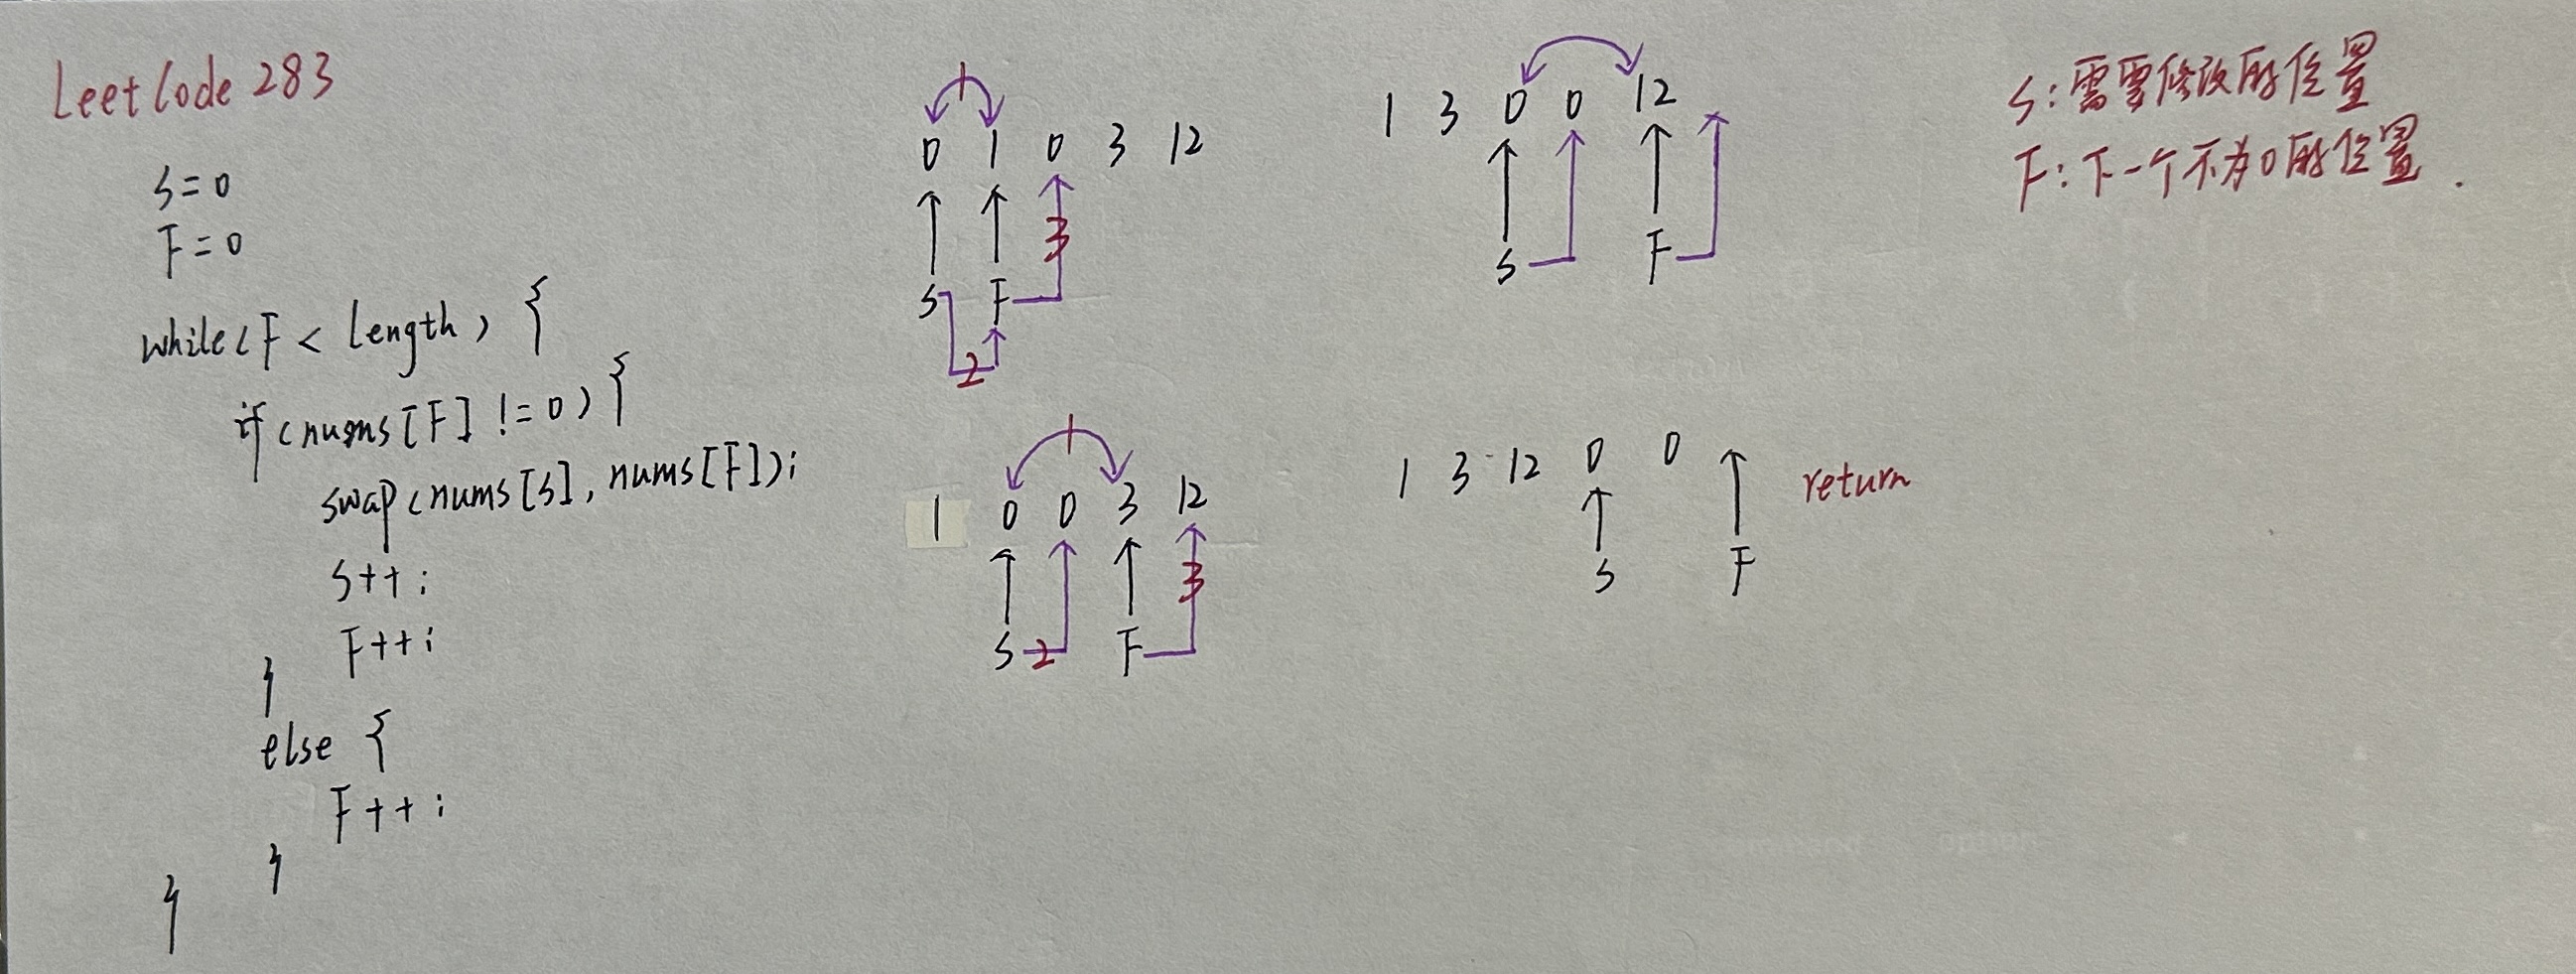 LeetCode 283
S = 0
F = 0
while(F < length) {
if(nums[F] != 0) {
swap(nums[S], nums[F]);
S++;
F++;
}
else {
F++;
}
}
1
0 1 0 3 12
3
S F
2
1
1 0 0 3 12
3
S 2 F
1 3 0 0 12
S F
1 3 12 0 0
return
S F
S:需要修改的位置
F:下一个不为0的位置.